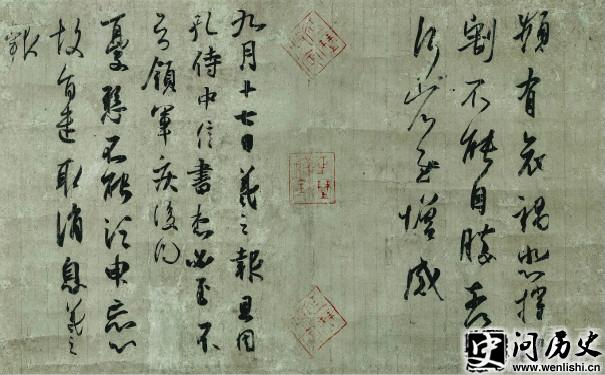 頻有哀禍悲摧切
割不能自勝奈何
奈何省慰增感
九月十七日羲之報且因
孔侍中信書想必至不
知領軍疾後問
憂懸不能須臾忘心
故旨遣取消息羲之
報
史问历史
www.wenlishi.cn